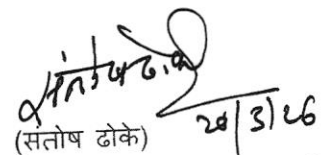 संतोष ढोके
26/3/26
(संतोष ढोके)